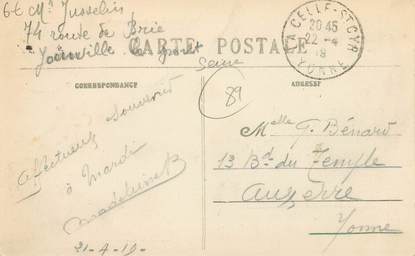 6E Mr Jusselin
74 route de Brie
Joinville le pont
Seine
CARTE POSTALE
CORRESPONDANCE
ADRESSE
LA CELLE-ST-CYR
20 45
22 -4
YONNE
89
Affectueux souvenir
à mardi
Madeleine B
21-4-19-
Melle G. Bénard
13 Bd. du Temple
Auxerre
Yonne